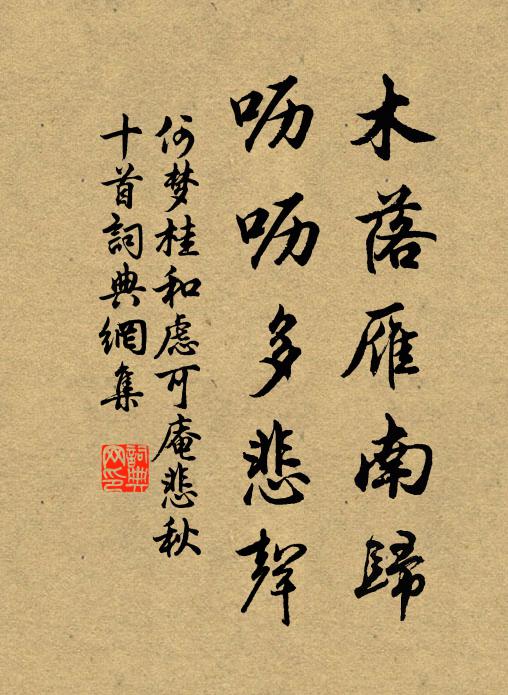 木落雁南歸
呖呖多悲聲
何梦桂和慮可庵悲秋
十首詞典網集
詞典网印